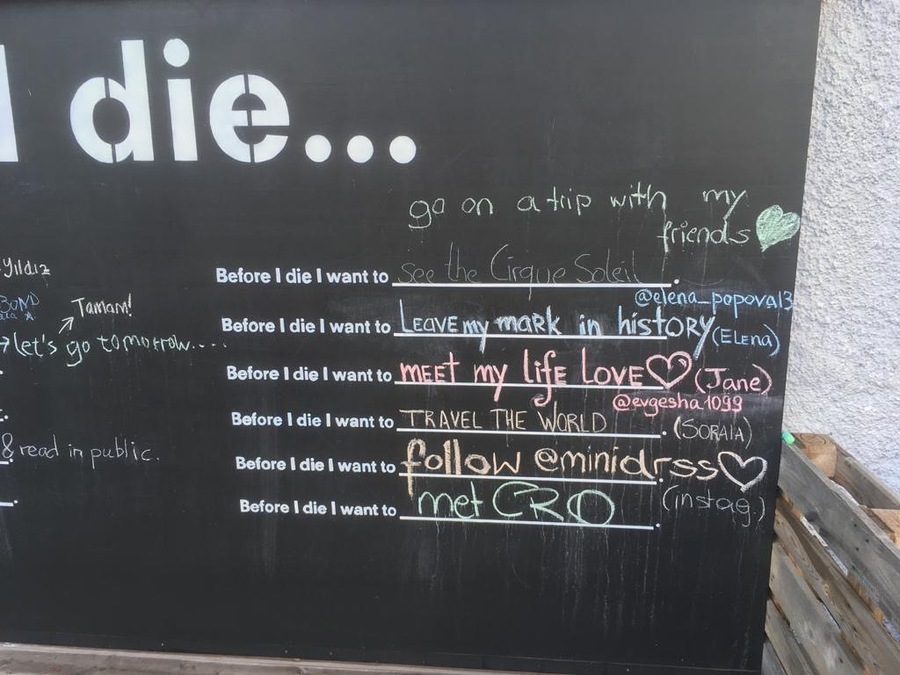 die...
go on a trip with my
friends
Yildiz
Tamam!
let's go tomorrow....
& read in public.
Before I die I want to see the Cirque Soleil.
@elena_popova13
Before I die I want to Leave my mark in history (Elena)
Before I die I want to meet my life love (Jane)
@evgesha1099
Before I die I want to TRAVEL THE WORLD. (SORAIA)
Before I die I want to follow @minidrss
(instag.)
Before I die I want to met CRO.